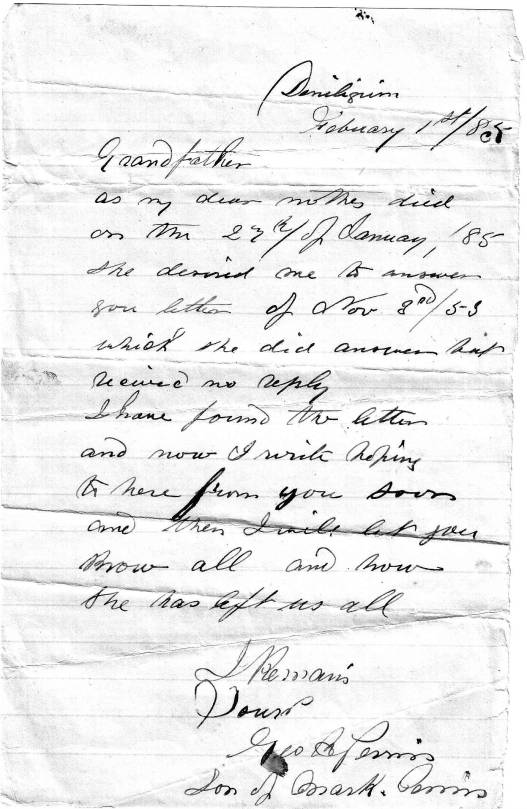 Deniliquim
Febuary 1st/85
Grandfather
as my dear mother died
on the 27th/of January, /85
she desired me to answer
you letter of Nov 3rd/53
which she did answer but
recived no reply
I have found the letter
and now I write hoping
to here from you soon
and then I will let you
know all and how
she has left us all
I Remain
Yours
Geo A Perrin
Son of Mark. Perrin